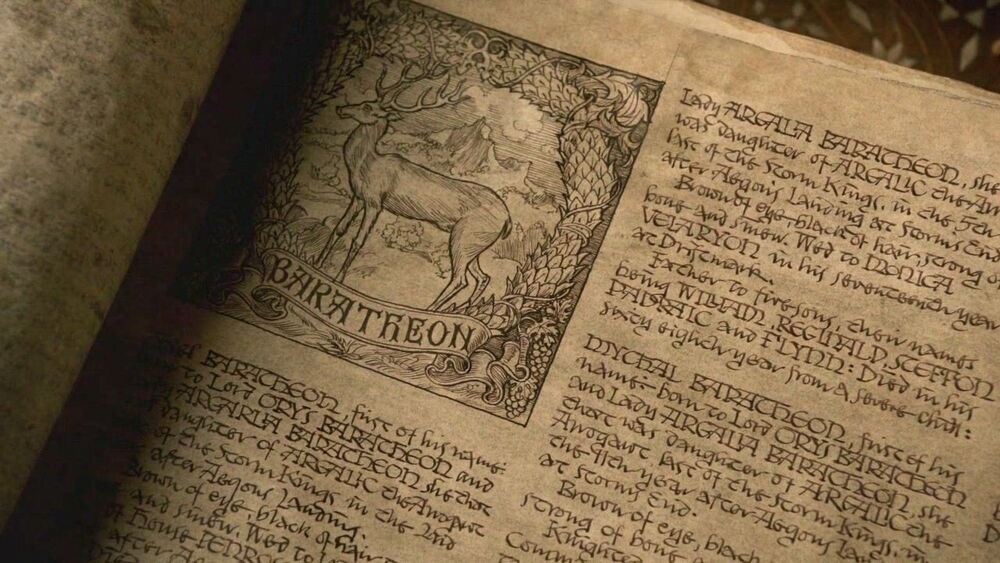 BARATHEON
BARATHEON, first of his name.
to Lord ORYS BARATHEON and
ARGALIA BARATHEON she that
daughter of ARGALIC the Arrogant
of the Storm Kings in the 2nd
after Aegons Landing.
Brown of eye black of hair
and sinew. Wed to
of House
after
Lady ARGALIA BARATHEON, she
was daughter of ARGALIC the Arr
last of the Storm Kings, in the 5th
after Aegons Landing at Storms End
Brown of eye black of hair, strong of
bone and sinew. Wed to MONICA
VELARYON in his seventeenth year
at Driftmark.
Father to five sons, their names
being WILLIAM, REGINALD, STEFFON
PADRAIC and FLYNN: Died in his
sixty eighth year from a severe chill:
MYCHAL BARATHEON, first of his
name born to Lord ORYS BARATHEON
and Lady ARGALIA BARATHEON, she
that was daughter of ARGALIC the
Arrogant last of the Storm Kings, in
the 9th year after Aegons Lan
at Storms End.
Brown of eye, black
strong of bone
Knighte
Comm